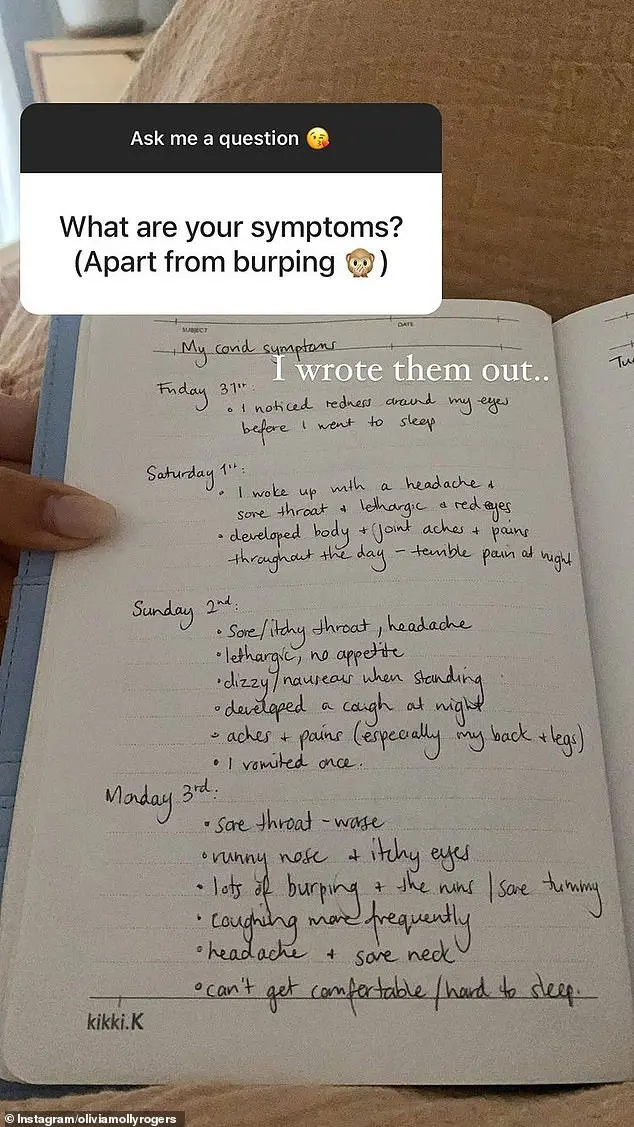 Ask me a question 😘
What are your symptoms?
(Apart from burping 🙊)
SUBJECT
DATE
My covid symptoms
I wrote them out..
Friday 31st:
• I noticed redness around my eyes
before I went to sleep
Saturday 1st:
• I woke up with a headache +
sore throat + lethargic + red eyes
• developed body + joint aches + pains
throughout the day – terrible pain at night
Sunday 2nd:
• Sore/itchy throat, headache
• lethargic, no appetite
• dizzy/nauseous when standing
• developed a cough at night
• aches + pains (especially my back + legs)
• I vomited once.
Monday 3rd:
• sore throat - worse
• runny nose + itchy eyes
• lots of burping + the runs / sore tummy
• coughing more frequently
• headache + sore neck
• can't get comfortable/hard to sleep.
kikki.K
Tu
© Instagram/oliviamollyrogers